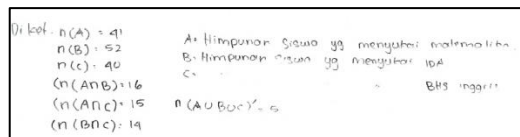 Diket. n(A) = 41
n(B) = 52
n(C) = 40
(n(A∩B) = 16
(n(A∩C) = 15
(n(B∩C) = 14
A = Himpunan siswa yg menyukai matematika
B = Himpunan siswa yg menyukai IPA
C = " " BHS Inggris
n(A∪B∪C)' = 5